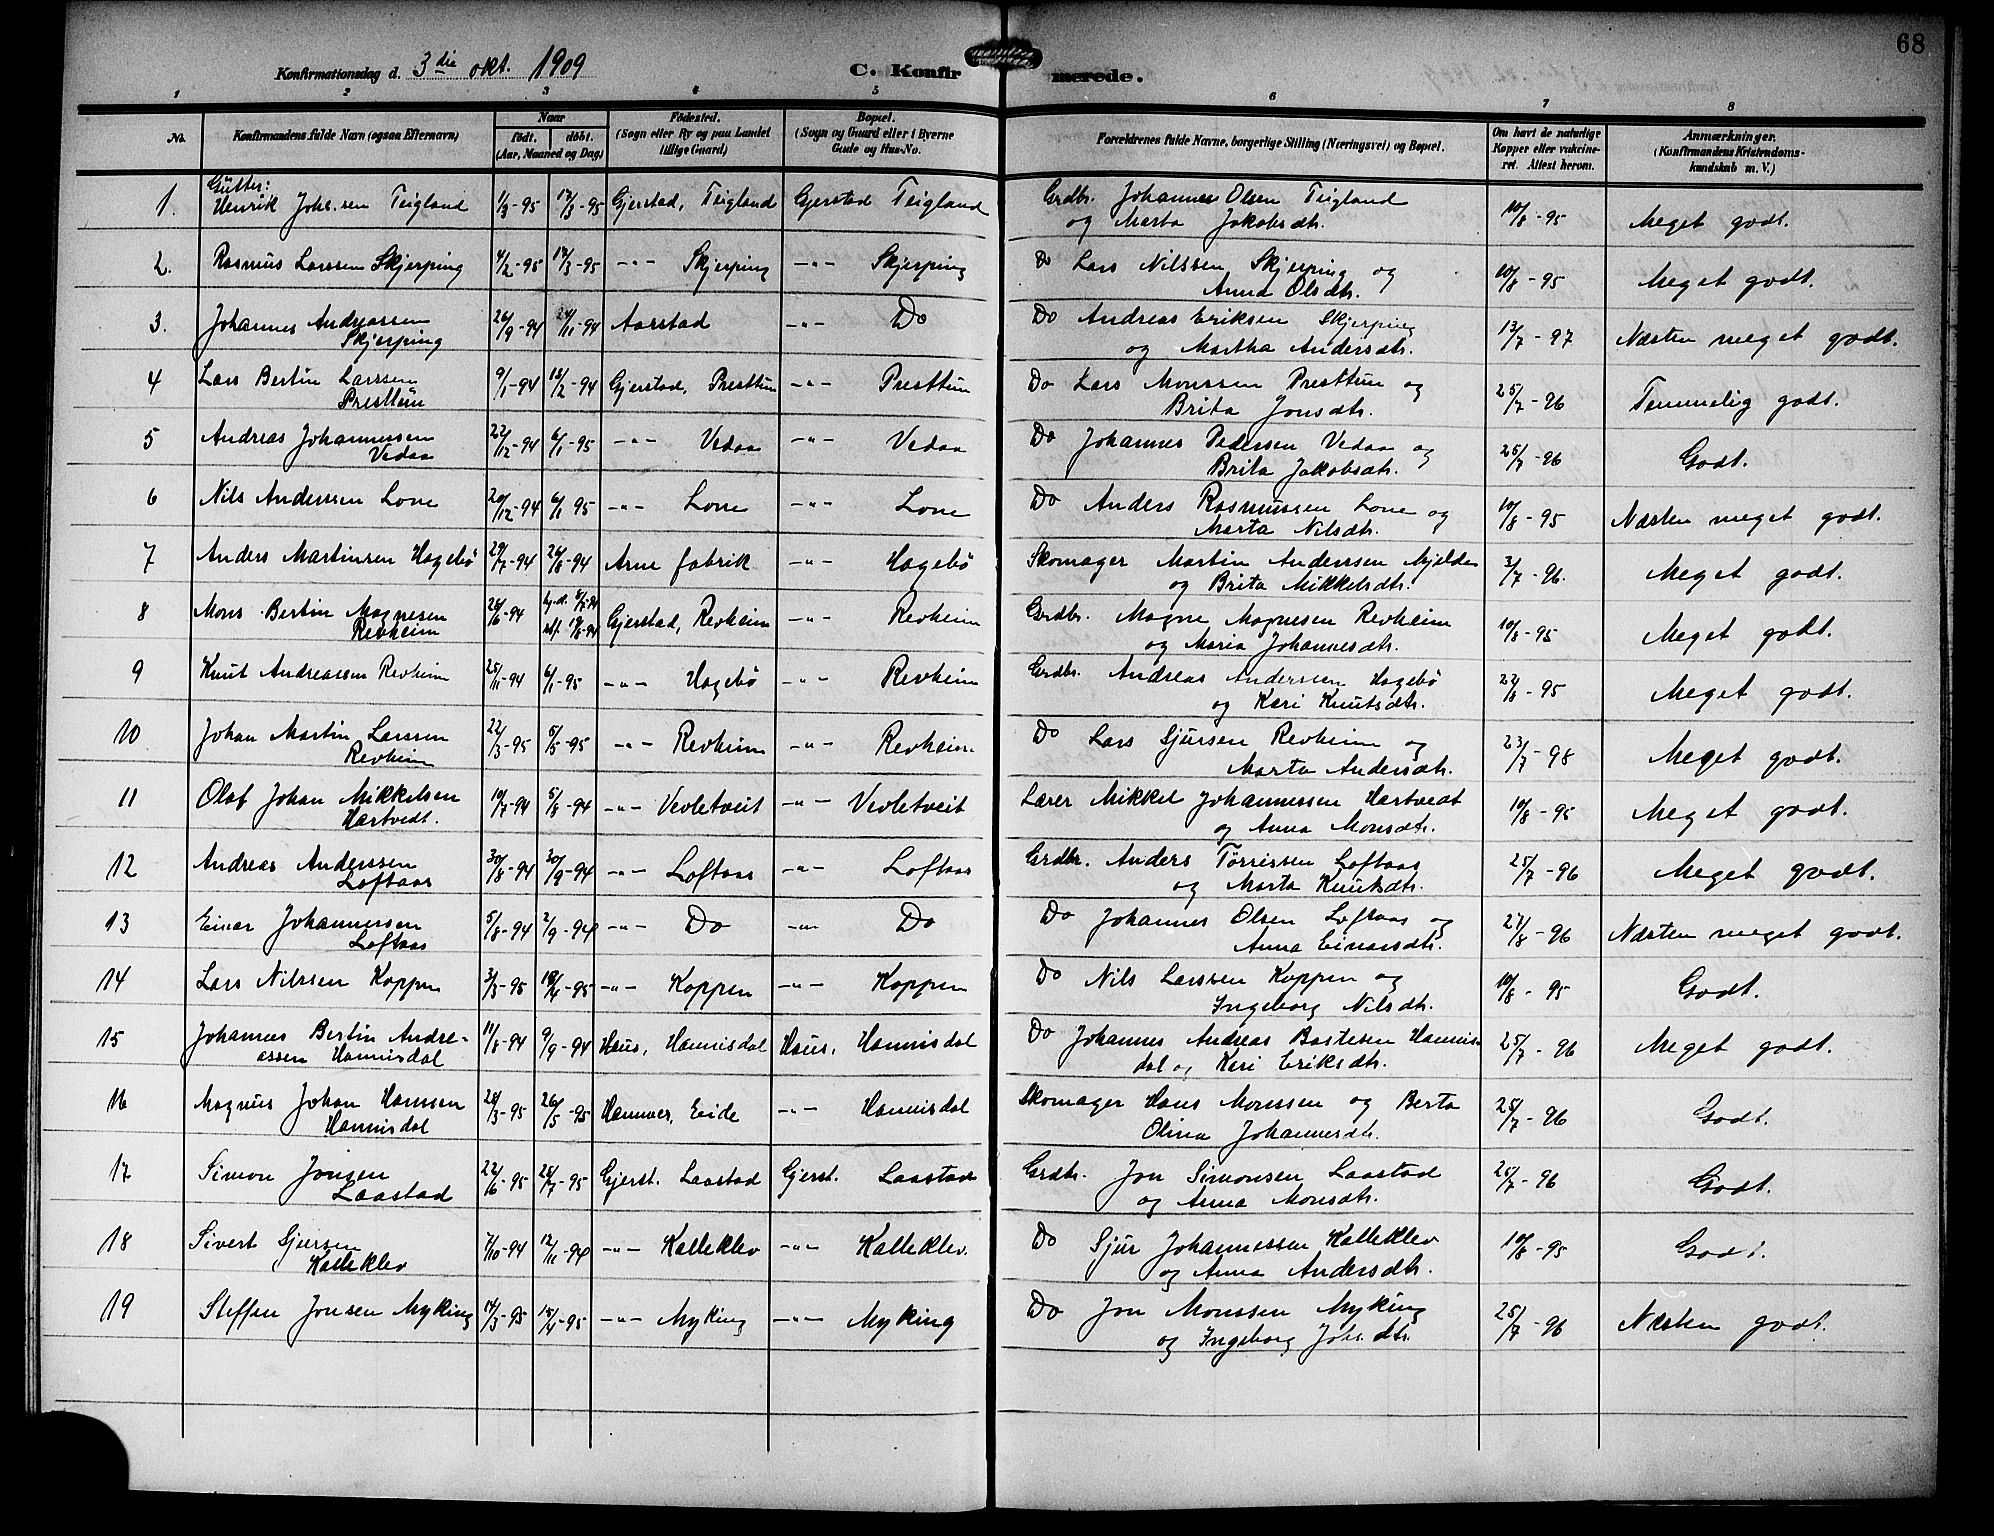 68
Konfirmationsdag d. 3die okt. 1909
C. Konfirmerede.
1 2 3 4 5 6 7 8
No. Konfirmandens fulde Navn (ogsaa Efternavn) Naar født. døbt. (Aar, Maaned og Dag) Fødested. (Sogn eller By og paa Landet tillige Gaard) Bopæl. (Sogn og Gaard eller i Byerne Gade og Hus-No. Forældrenes fulde Navne, borgerlige Stilling (Næringsvei) og Bopæl. Om havt de naturlige Kopper eller vaccineret. Attest herom. Anmærkninger. (Konfirmandens Kristendomskundskab m. V.)
Gutter:
1. Henrik Johs.sen Teigland 1/3-95 17/3-95 Gjerstad, Teigland Gjerstad Teigland Grdbr. Johannes Olsen Teigland og Marta Jakobsdtr. 10/8-95 Meget godt.
2. Rasmus Larssen Skjerping 4/2-95 17/3-95 -"- Skjerping -"- Skjerping Do Lars Nilssen Skjerping og Anna Olsdtr. 10/8-95 Meget godt.
3. Johannes Andreassen Skjerping 26/9-94 24/11-94 Aarstad -"- Do Do Andreas Eriksen Skjerping og Martha Andersdtr. 13/7-97 Næsten meget godt.
4 Lars Bertin Larssen Presttun 9/1-94 18/2-94 Gjerstad, Presttun -"- Presttun Do Lars Monssen Presttun og Brita Jonsdtr. 25/7-96 Temmelig godt.
5 Andreas Johannessen Vedaa 22/12-94 6/1-95 -"- Vedaa -"- Vedaa Do Johannes Pedersen Vedaa og Brita Jakobsdtr. 25/7-96 Godt.
6 Nils Anderssen Lone 20/12-94 6/1 95 -"- Lone -"- Lone Do Anders Rasmussen Lone og Marta Nilsdtr. 10/8-95 Næsten meget godt.
7 Anders Martinsen Hagebø 29/7-94 26/8-94 Arne fabrik -"- Hagebø Skomager Martin Anderssen Mjelde og Brita Mikkelsdtr. 3/7-96. Meget godt.
8 Mons Bertin Magnesen Revheim 28/6-94 Gjerstad, Revheim -"- Revheim Grdbr. Magne Magnesen Revheim og Maria Johannesdtr. 10/8-95 Meget godt.
9 Knut Andreassen Revheim 25/11-94 6/1-95 -"- Hagebø -"- Revheim Grdbr. Andreas Anderssen Hagebø og Kari Knutsdtr. 22/8-95 Meget godt.
10 Johan Martin Larssen Revheim 22/3-95 5/5-95 -"- Revheim -"- Revheim Do Lars Sjursen Revheim og Marta Andersdtr. 23/7-98 Meget godt.
11 Olaf Johan Mikkelsen Hartvedt. 10/7-94 5/8-94 -"- Vevletveit -"- Vevletveit Lærer Mikkel Johannessen Hartvedt og Anna Monsdtr. 10/8-95 Meget godt.
12 Andreas Anderssen Loftaas 30/8-94 30/9-94 -"- Loftaas -"- Loftaas Grdbr. Anders Tørrissen Loftaas og Marta Knutsdtr. 25/7-96 Meget godt.
13 Einar Johannessen Loftaas 5/8-94 2/9-94 -"- Do -"- Do Do Johannes Olsen Loftaas og Anna Einarsdtr. 27/8-96 Næsten meget godt.
14 Lars Nilssen Koppen 3/3-95 -"- Koppen -"- Koppen Do Nils Larssen Koppen og Ingeborg Nilsdtr. 10/8-95 Godt.
15 Johannes Bertin Andreassen Hannisdal 11/8-94 9/9-94 Haus, Hannisdal Haus, Hannisdal Do Johannes Andreas Bastesen Hannisdal og Kari Eriksdtr. 25/7-96 Meget godt.
16 Magnus Johan Hanssen Hannisdal 28/3-95 26/5-95 Hammer, Eide -"- Hannisdal Skomager Hans Monssen og Berta Olina Johannesdtr. 25/7-96 Godt.
17 Simon Jonsen Laastad 22/6-95 28/7-95 Gjerst. Laastad Gjerst. Laastad Grdbr. Jon Simonsen Laastad og Anna Monsdtr. 25/7-96 Godt.
18 Sivert Sjursen Kalleklev 7/10-94 12/11-94 -"- Kalleklev -"- Kalleklev. Do Sjur Johannessen Kalleklev og Anna Andersdtr. 10/8-95 Godt.
19 Steffen Jonsen Myking 14/3-95 15/4-95 -"- Myking -"- Myking Do Jon Monssen Myking og Ingeborg Johs.dtr. 25/7-96 Næsten godt.